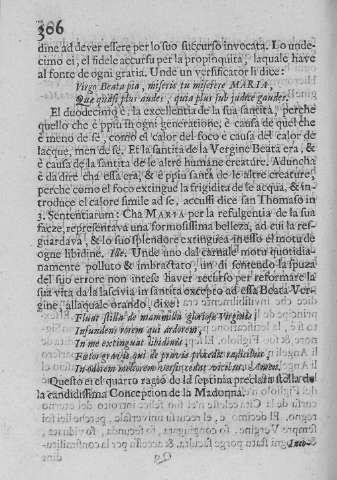 306
dine ad dever essere per lo suo succurso invocata. Lo unde-
cimo ei, el fidele accursu per la propinquita, laquale have
al fonte de ogni gratia. Unde un versificator li dice:
Virgo Beata pia, miseris tu miserere MARIA,
Quæ quasi plus audes, quia plus sub judice gaudes.
El duodecimo è, la excellentia de la sua santità, perche
quello che è ppiu in ogni generatione, è causa de quel che
è meno de se, como el calor del foco è causa del calor de
lacque, men de se. Et la santità de la Vergine Beata era, &
è causa de la santità de le altre humane creature. Aduncha
è da dire cha essa era, & è ppiu santa de le altre creature,
perche como el foco extingue la frigidita de se acqua, & in-
troduce el calore simile ad se, accussi dice san Thomaso in
3. Sententiarum: Cha MARIA per la refulgentia de la sua
facze, representava una formosissima belleza, ad cui la res-
guardava, & lo suo splendore extinguea in esso el motu de
ogne libidine. Ille. Unde uno dal carnale motu quotidia-
namente polluto & imbractato, un dì sentendo la spuza
del suo errore non intese haver recurso per reformare la
sua vita da la lascivia in santita excepto ad essa Beata Ver-
gine, allaquale orando, dixe:
Fluat stilla de mammilla gloriosæ Virginis;
Infundem rorem qui ardorem,
In me extinguat libidinis
In odorem meliorem
Amen.
Questo ei el quarto ragio de la septima preclara stella de
la candidissima Conception de la Madonna.